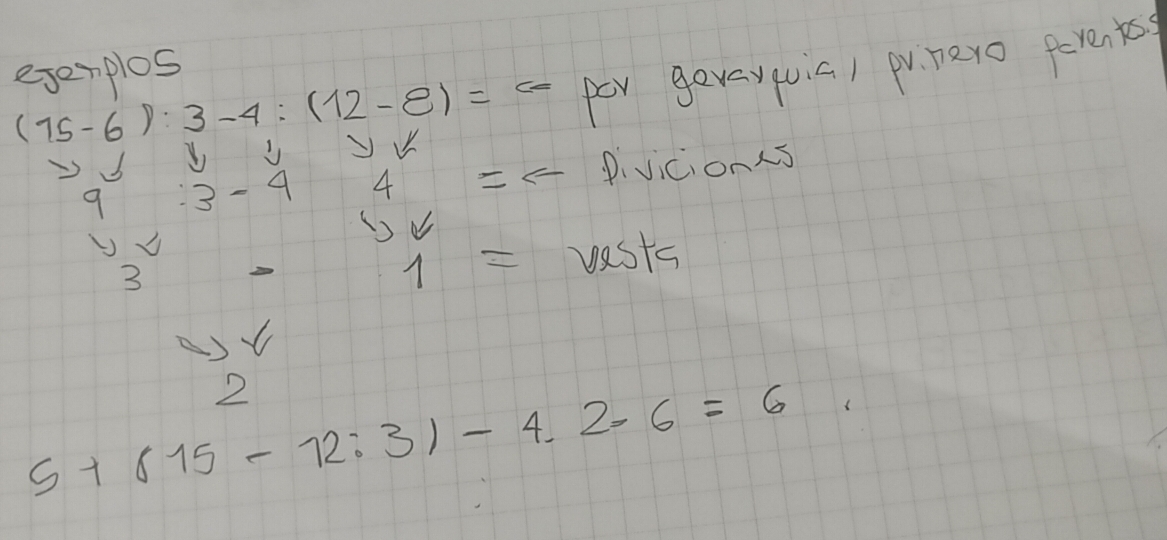 ejemplos
(15-6):3-4:(12-8)= ← por gerarquia, primero parentesis
9 :3-4 4 =← Diviciones
3 - 1 = resta
2
5+(15-12:3)-4.2-6=6